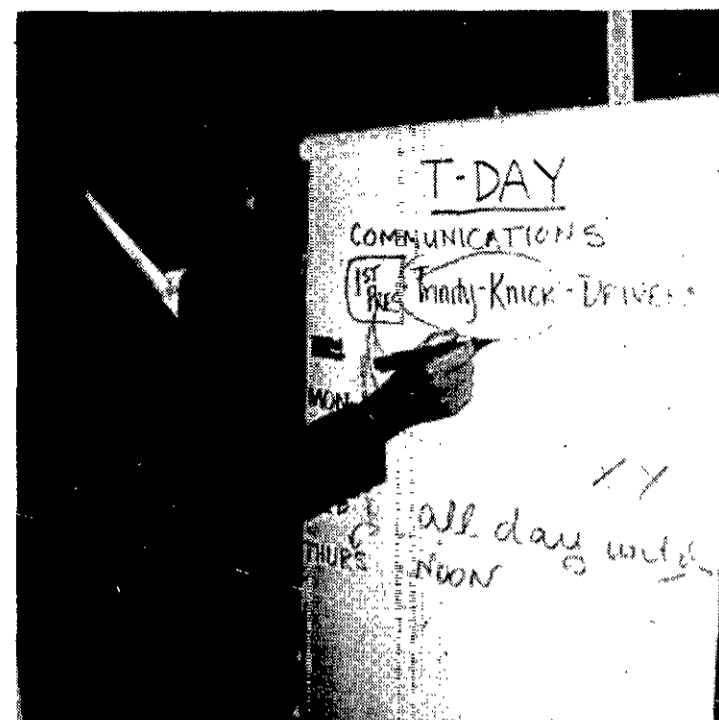 T-DAY
COMMUNICATIONS
1ST PRES Trinity-Knick-Drivers
MON
THURS
all day
NOON